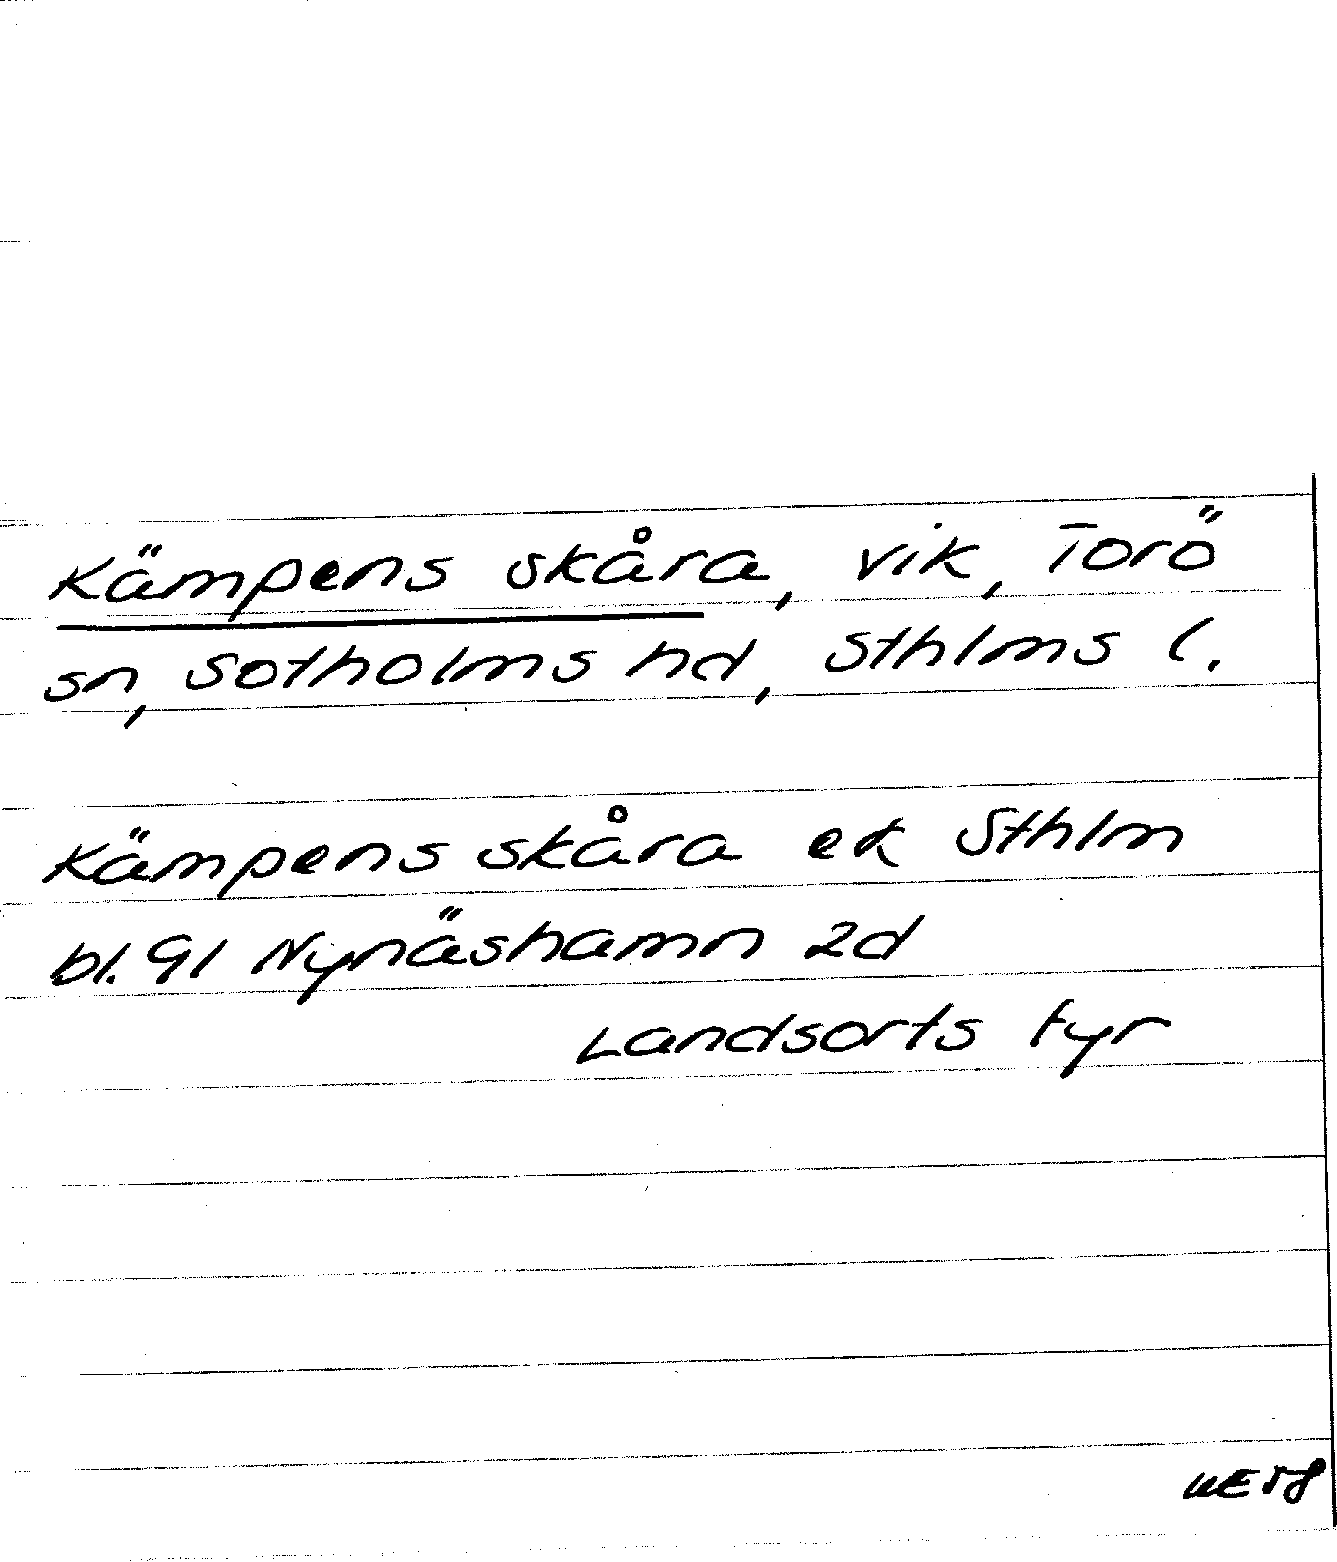 Kämpens skåra, vik, Torö
sn, Sotholms hd, Sthlms l.
Kämpens skåra ek Sthlm
bl. 91 Nynäshamn 2d
Landsorts fyr